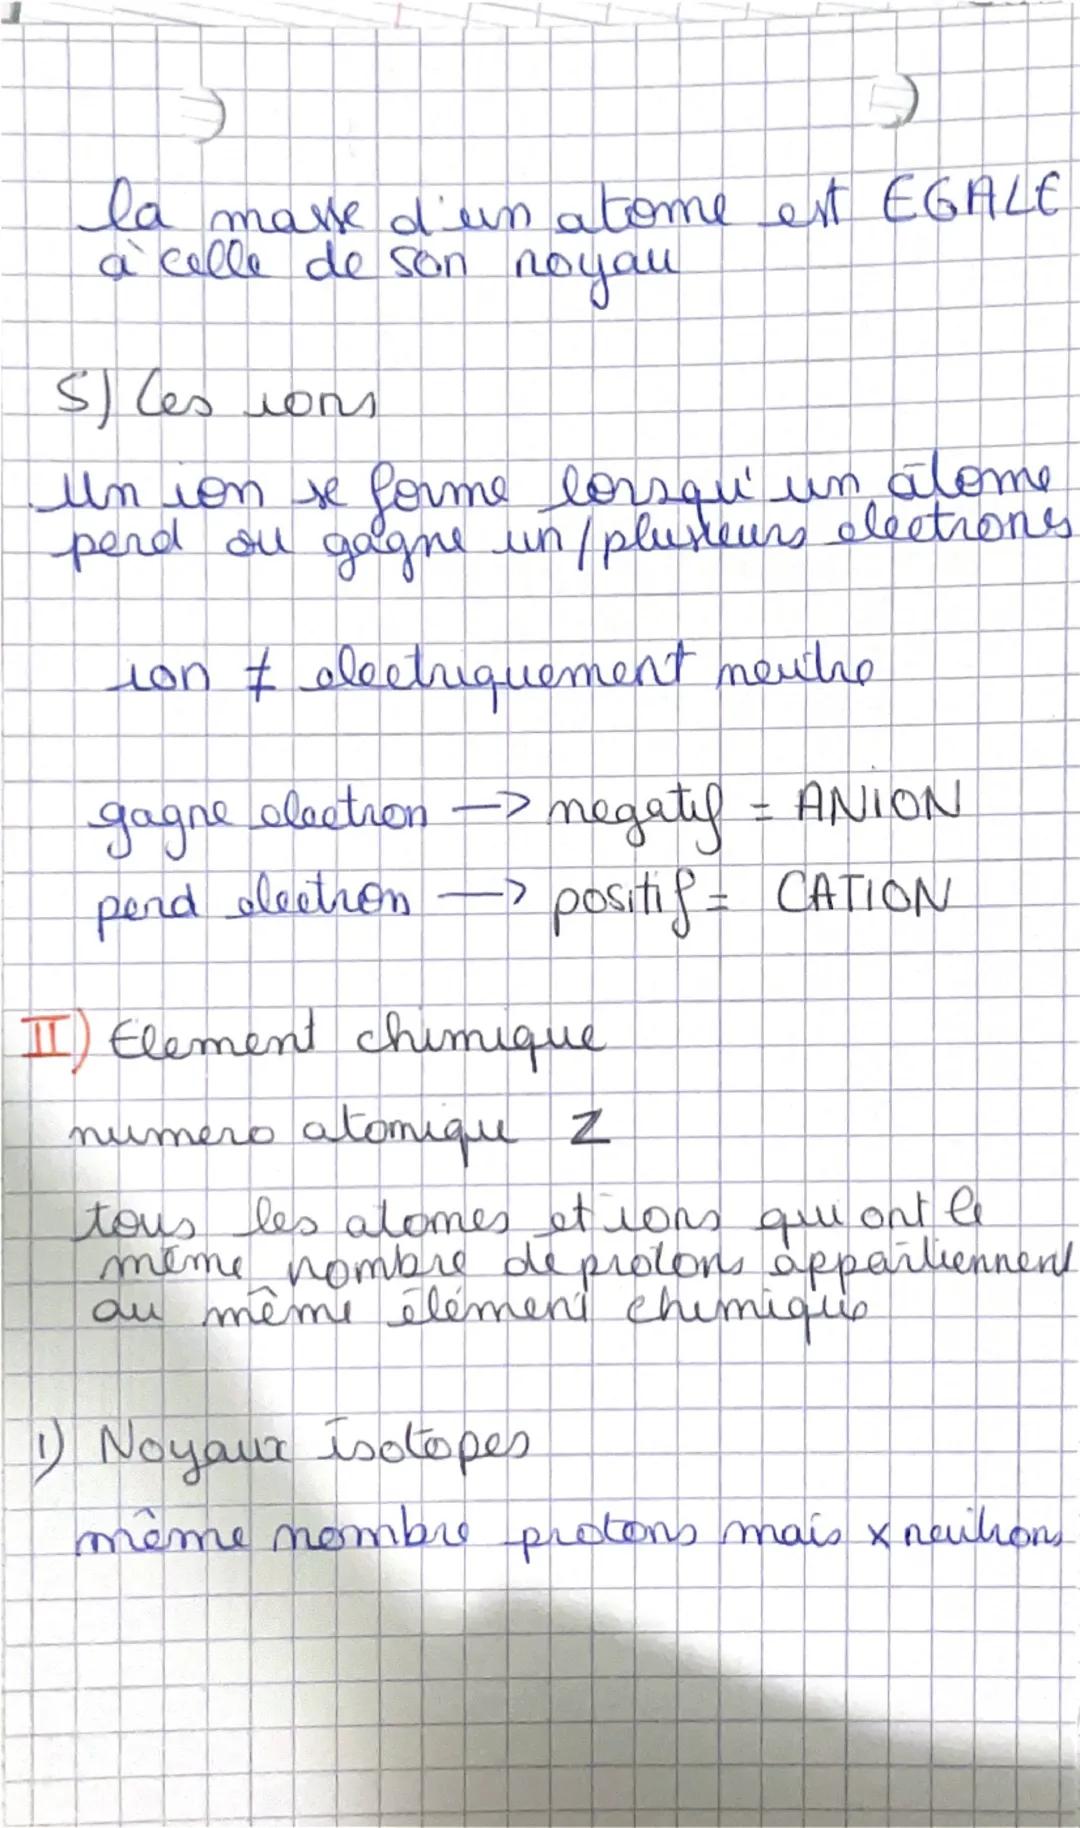 la masse d'un atome est EGALE
à celle de son noyau
5) Les ions
Un ion se forme lorsqu'un atome
perd ou gagne un/plusieurs electrons
ion ≠ electriquement neutre
gagne electron —> negatif = ANION
perd electron —> positif = CATION
II) Element chimique
numero atomique Z
tous les atomes et ions qui ont le
même nombre de protons appartiennent
au même élément chimique
1) Noyaux isotopes
même nombre protons mais x neutrons